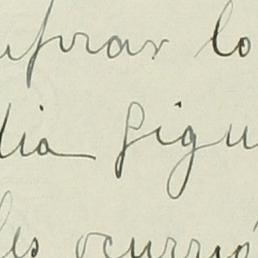 ufrar lo
dia figu
les ocurrió